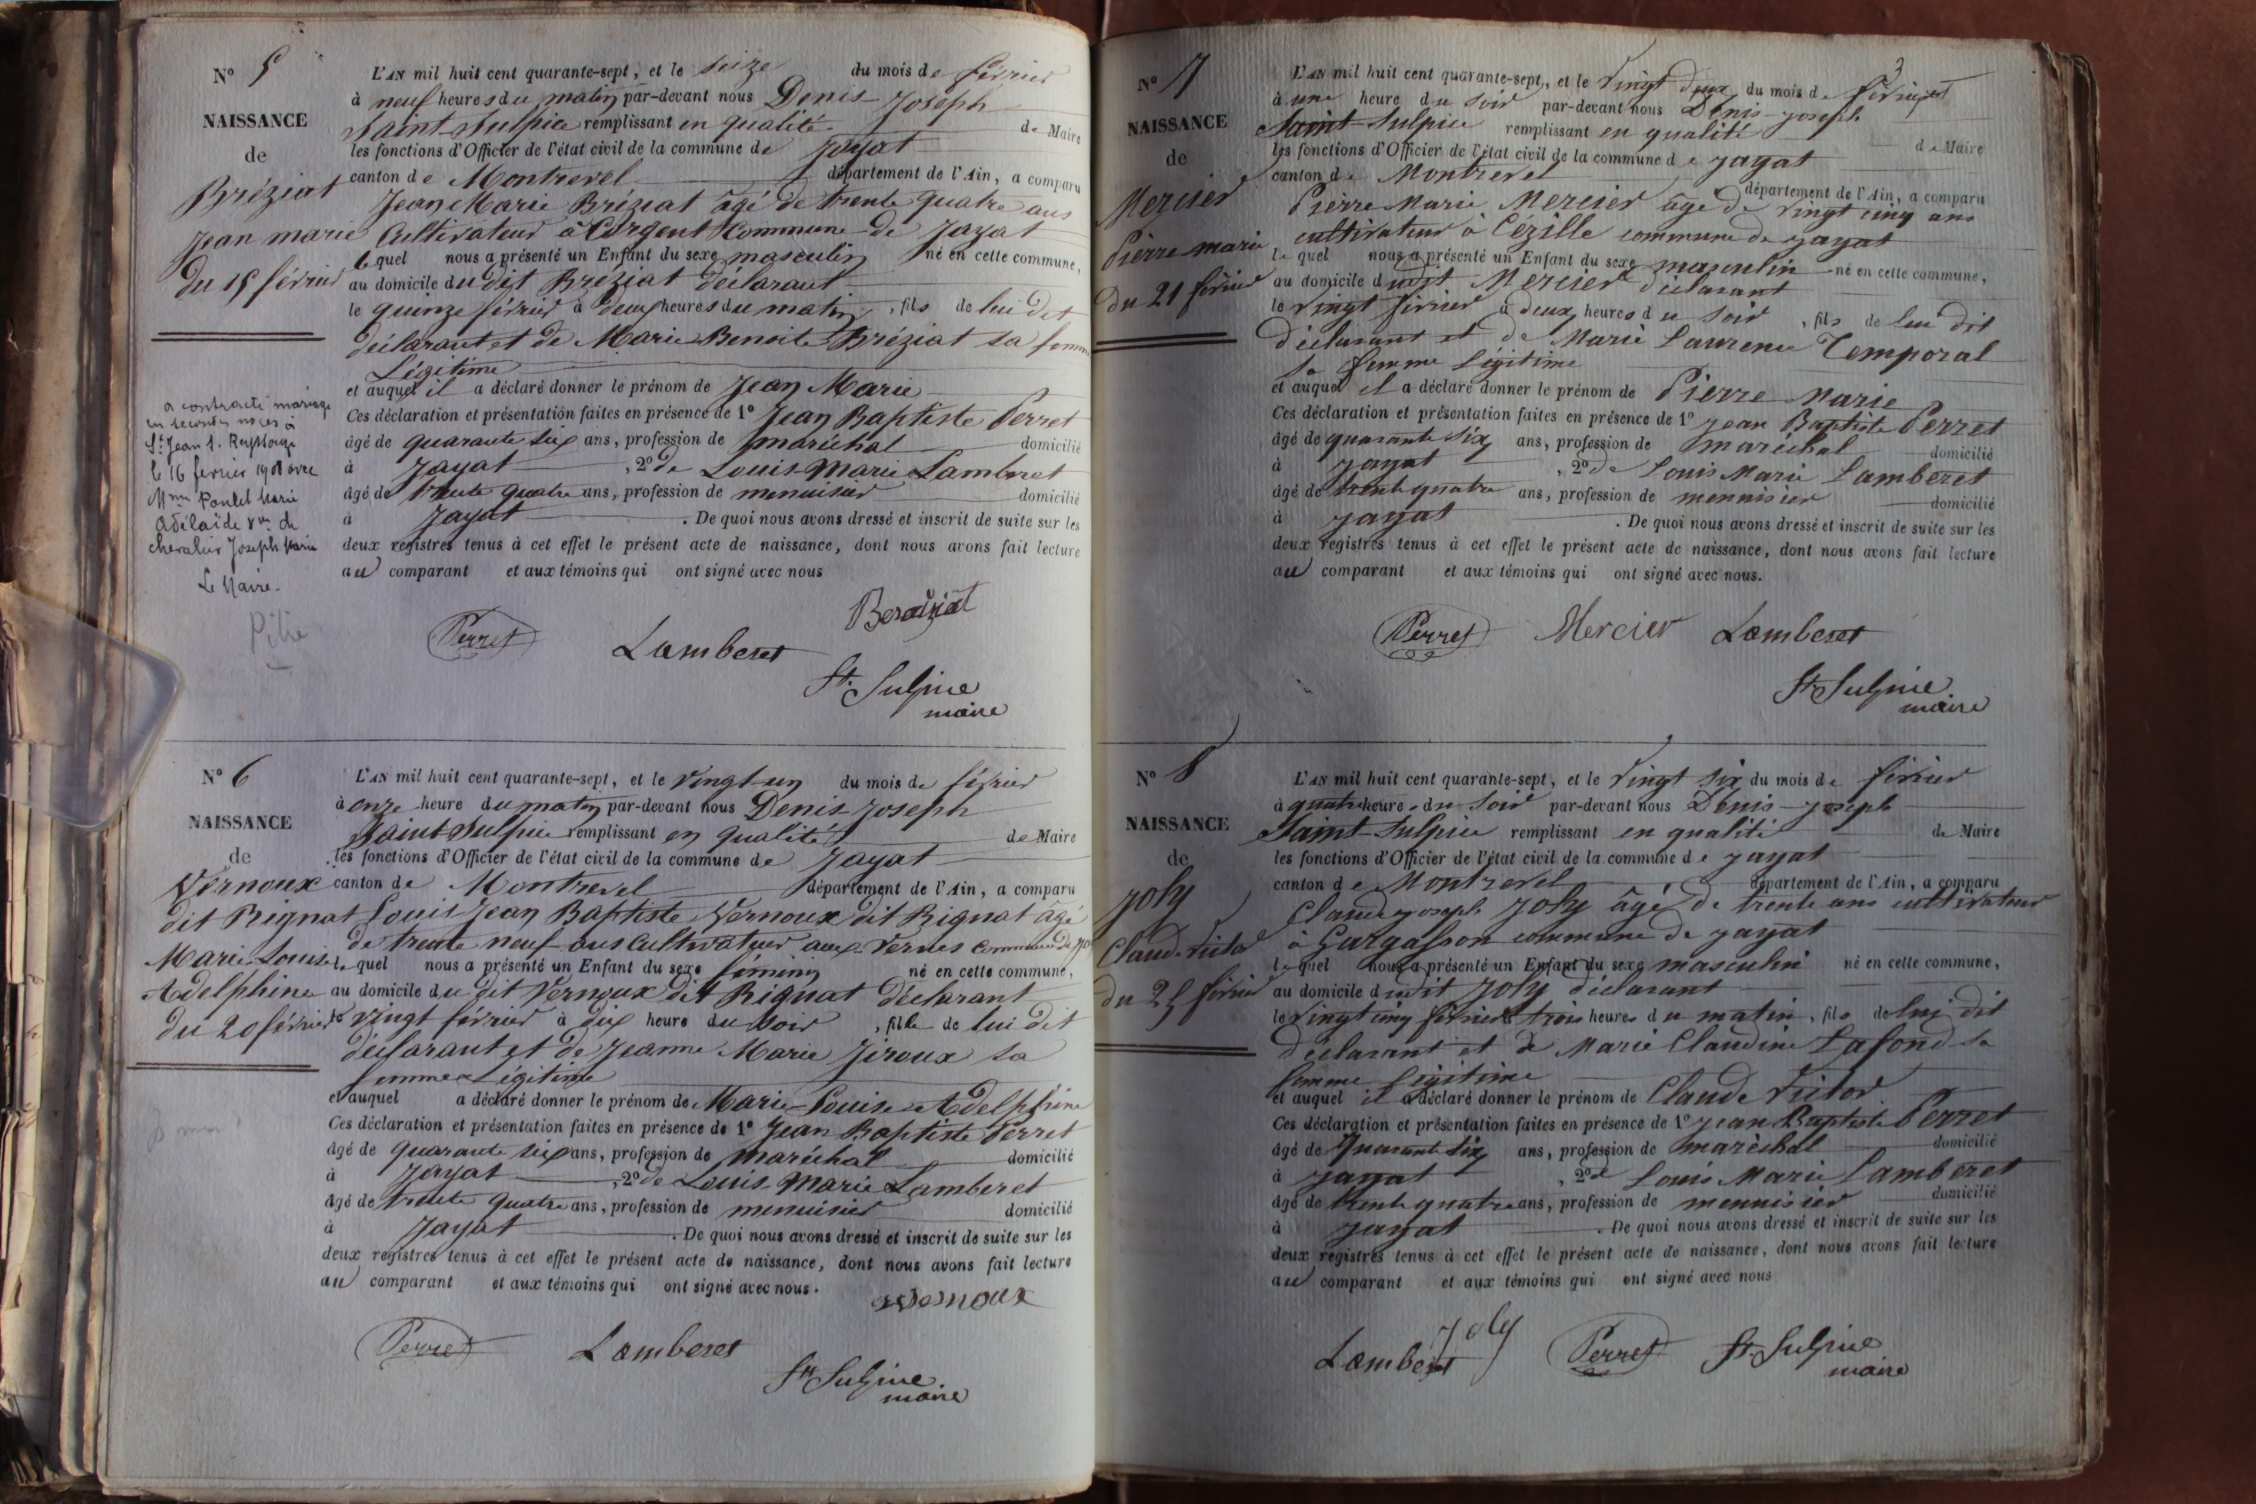 N° 5
NAISSANCE
de
Bréziat
Jean marie
du 15 février
a contracté mariage
en secondes noces à
St Jean s. Reyssouze
le 16 février 1901 avec
Mme Poulet Marie
Adélaïde vve de
chevalier Joseph Marie
Le Maire.
L'AN mil huit cent quarante-sept, et le seize du mois de février
à neuf heures du matin par-devant nous Denis Joseph
Saint-Sulpice remplissant en qualité de Maire
les fonctions d'Officier de l'état civil de la commune de Jayat
canton de Montrevel département de l'Ain, a comparu
Jean Marie Bréziat âgé de trente quatre ans
Cultivateur à Curgent Commune de Jayat
lequel nous a présenté un Enfant du sexe masculin né en cette commune,
au domicile du dit Bréziat déclarant
le quinze février à deux heures du matin, fils de lui dit
déclarant et de Marie Benoite Bréziat sa femme
Légitime
et auquel il a déclaré donner le prénom de Jean Marie
Ces déclaration et présentation faites en présence de 1° Jean Baptiste Perret
âgé de quarante six ans, profession de maréchal domicilié
à Jayat, 2° de Louis Marie Lamberet
âgé de trente quatre ans, profession de menuisier domicilié
à Jayat. De quoi nous avons dressé et inscrit de suite sur les
deux registres tenus à cet effet le présent acte de naissance, dont nous avons fait lecture
au comparant et aux témoins qui ont signé avec nous
Perret Lamberet
St. Sulpice
maire
N° 6
NAISSANCE
de
Vernoux
dit Rignat
Marie Louise
Adelphine
du 20 février
L'AN mil huit cent quarante-sept, et le vingt-un du mois de février
à onze heure du matin par-devant nous Denis Joseph
Saint Sulpice remplissant en qualité de Maire
les fonctions d'Officier de l'état civil de la commune de Jayat
canton de Montrevel département de l'Ain, a comparu
Louis Jean Baptiste Vernoux dit Rignat âgé
de trente neuf ans Cultivateur aux Vernes commune de
lequel nous a présenté un Enfant du sexe féminin né en cette commune,
au domicile du dit Vernoux dit Rignat déclarant
le vingt février à dix heure du soir, fille de lui dit
déclarant et de Jeanne Marie Jiroux sa
femme Légitime
et auquel a déclaré donner le prénom de Marie Louise Adelphine
Ces déclaration et présentation faites en présence de 1° Jean Baptiste Perret
âgé de quarante six ans, profession de maréchal domicilié
à Jayat, 2° de Louis Marie Lamberet
âgé de trente quatre ans, profession de menuisier domicilié
à Jayat. De quoi nous avons dressé et inscrit de suite sur les
deux registres tenus à cet effet le présent acte de naissance, dont nous avons fait lecture
au comparant et aux témoins qui ont signé avec nous.
Vernoux
Perret Lamberet
St Sulpice
maire
3
N° 7
NAISSANCE
de
Mercier
Pierre marie
du 21 février
L'AN mil huit cent quarante-sept, et le vingt deux du mois de février
à une heure du soir par-devant nous Denis-Joseph
Saint-Sulpice remplissant en qualité de Maire
les fonctions d'Officier de l'état civil de la commune de Jayat
canton de Montrevel département de l'Ain, a comparu
Pierre Marie Mercier âgé de vingt cinq ans
cultivateur à Cézille commune de Jayat
lequel nous a présenté un Enfant du sexe masculin né en cette commune,
au domicile dudit Mercier déclarant
le vingt février à deux heures du soir, fils de lui dit
déclarant et de Marie Laurence Temporal
sa femme légitime
et auquel il a déclaré donner le prénom de Pierre Marie
Ces déclaration et présentation faites en présence de 1° Jean Baptiste Perret
âgé de quarante six ans, profession de maréchal domicilié
à Jayat, 2° de Louis Marie Lamberet
âgé de trente quatre ans, profession de menuisier domicilié
à Jayat. De quoi nous avons dressé et inscrit de suite sur les
deux registres tenus à cet effet le présent acte de naissance, dont nous avons fait lecture
au comparant et aux témoins qui ont signé avec nous.
Perret Mercier Lamberet
St Sulpice
maire
N° 8
NAISSANCE
de
Joly
Claude Victor
du 25 février
L'AN mil huit cent quarante-sept, et le vingt six du mois de février
à quatre heure du soir par-devant nous Denis-Joseph
Saint-Sulpice remplissant en qualité de Maire
les fonctions d'Officier de l'état civil de la commune de Jayat
canton de Montrevel département de l'Ain, a comparu
Claude Joseph Joly âgé de trente ans cultivateur
à Gargasson commune de Jayat
lequel nous a présenté un Enfant du sexe masculin né en cette commune,
au domicile dudit Joly déclarant
le vingt cinq février à trois heures du matin, fils de lui dit
déclarant et de Marie Claudine Lafond sa
femme légitime
et auquel il a déclaré donner le prénom de Claude Victor
Ces déclaration et présentation faites en présence de 1° Jean Baptiste Perret
âgé de quarante six ans, profession de maréchal domicilié
à Jayat, 2° de Louis Marie Lamberet
âgé de trente quatre ans, profession de menuisier domicilié
à Jayat. De quoi nous avons dressé et inscrit de suite sur les
deux registres tenus à cet effet le présent acte de naissance, dont nous avons fait lecture
au comparant et aux témoins qui ont signé avec nous
Joly
Lamberet Perret St. Sulpice
maire